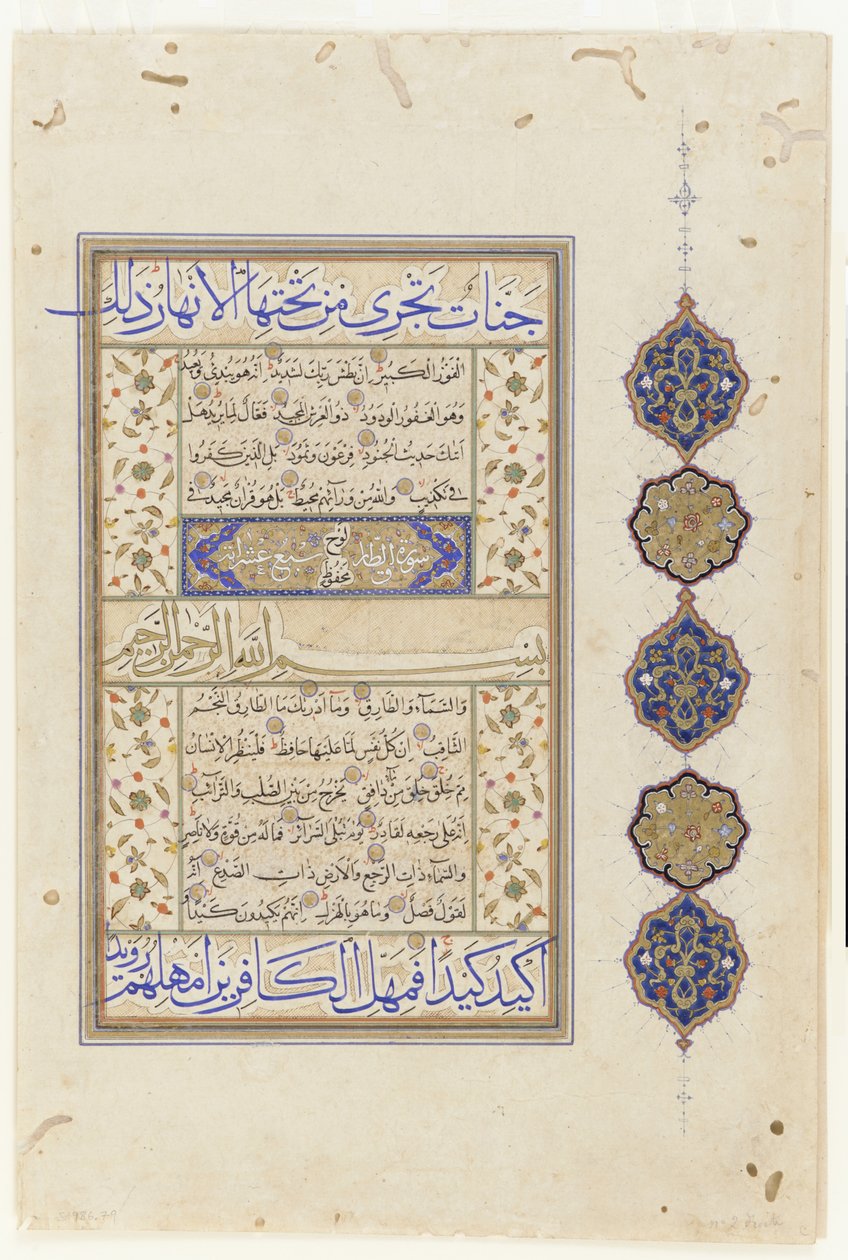 جَنَّاتٌ تَجْرِي مِنْ تَحْتِهَا الْأَنْهَارُ ذَلِكَ
الْفَوْزُ الْكَبِيرُ إِنَّ بَطْشَ رَبِّكَ لَشَدِيدٌ إِنَّهُ هُوَ يُبْدِئُ وَيُعِيدُ
وَهُوَ الْغَفُورُ الْوَدُودُ ذُو الْعَرْشِ الْمَجِيدُ فَعَّالٌ لِمَا يُرِيدُ هَلْ
أَتَىكَ حَدِيثُ الْجُنُودِ فِرْعَوْنَ وَثَمُودَ بَلِ الَّذِينَ كَفَرُوا
فِي تَكْذِيبٍ وَاللَّهُ مِنْ وَرَائِهِمْ مُحِيطٌ بَلْ هُوَ قُرْآنٌ مَجِيدٌ فِي
لَوْحٍ
سورة الطارق سبع عشر آية
مَحْفُوظٍ
بِسْمِ اللَّهِ الرَّحْمَنِ الرَّحِيمِ
وَالسَّمَاءِ وَالطَّارِقِ وَمَا أَدْرَىكَ مَا الطَّارِقُ النَّجْمُ
الثَّاقِبُ إِنْ كُلُّ نَفْسٍ لَمَّا عَلَيْهَا حَافِظٌ فَلْيَنْظُرِ الْإِنْسَانُ
مِمَّ خُلِقَ خُلِقَ مِنْ مَاءٍ دَافِقٍ يَخْرُجُ مِنْ بَيْنِ الصُّلْبِ وَالتَّرَائِبِ
إِنَّهُ عَلَى رَجْعِهِ لَقَادِرٌ يَوْمَ تُبْلَى السَّرَائِرُ فَمَا لَهُ مِنْ قُوَّةٍ وَلَا نَاصِرٍ
وَالسَّمَاءِ ذَاتِ الرَّجْعِ وَالْأَرْضِ ذَاتِ الصَّدْعِ إِنَّهُ
لَقَوْلٌ فَصْلٌ وَمَا هُوَ بِالْهَزْلِ إِنَّهُمْ يَكِيدُونَ كَيْدًا وَ
أَكِيدُ كَيْدًا فَمَهِّلِ الْكَافِرِينَ أَمْهِلْهُمْ رُوَيْدًا
S1986.79